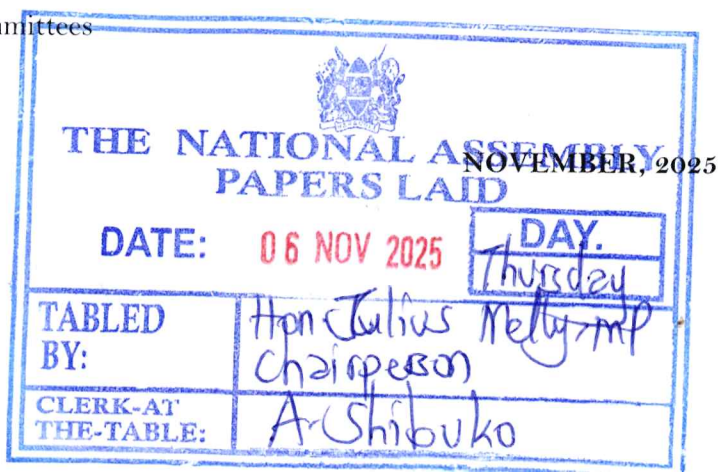 mmittees
THE NATIONAL ASSEMBLY
NOVEMBER, 2025
PAPERS LAID
DATE: 06 NOV 2025
DAY.
Thursday
TABLED BY:
Hon Julius Melly, MP
Chairperson
CLERK-AT THE-TABLE:
A. Shibuko